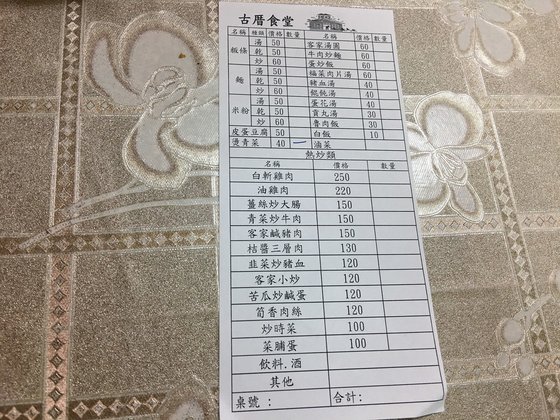 古厝食堂
名稱 種類 價格 數量 名稱 價格 數量
粄條 湯 50 客家湯圓 60
乾 50 牛肉炒麵 60
炒 60 蛋炒飯 60
麵 湯 50 福菜肉片湯 60
乾 50 豬血湯 40
炒 60 餛飩湯 40
米粉 湯 50 蛋花湯 30
乾 50 貢丸湯 30
炒 60 魯肉飯 30
皮蛋豆腐 50 白飯 10
燙青菜 40 一 滷菜
熱炒類
名稱 價格 數量
白斬雞肉 250
油雞肉 220
薑絲炒大腸 150
青菜炒牛肉 150
客家鹹豬肉 150
桔醬三層肉 130
韭菜炒豬血 120
客家小炒 120
苦瓜炒鹹蛋 120
筍香肉絲 120
炒時菜 100
菜脯蛋 100
飲料.酒
其他
桌號： 合計：